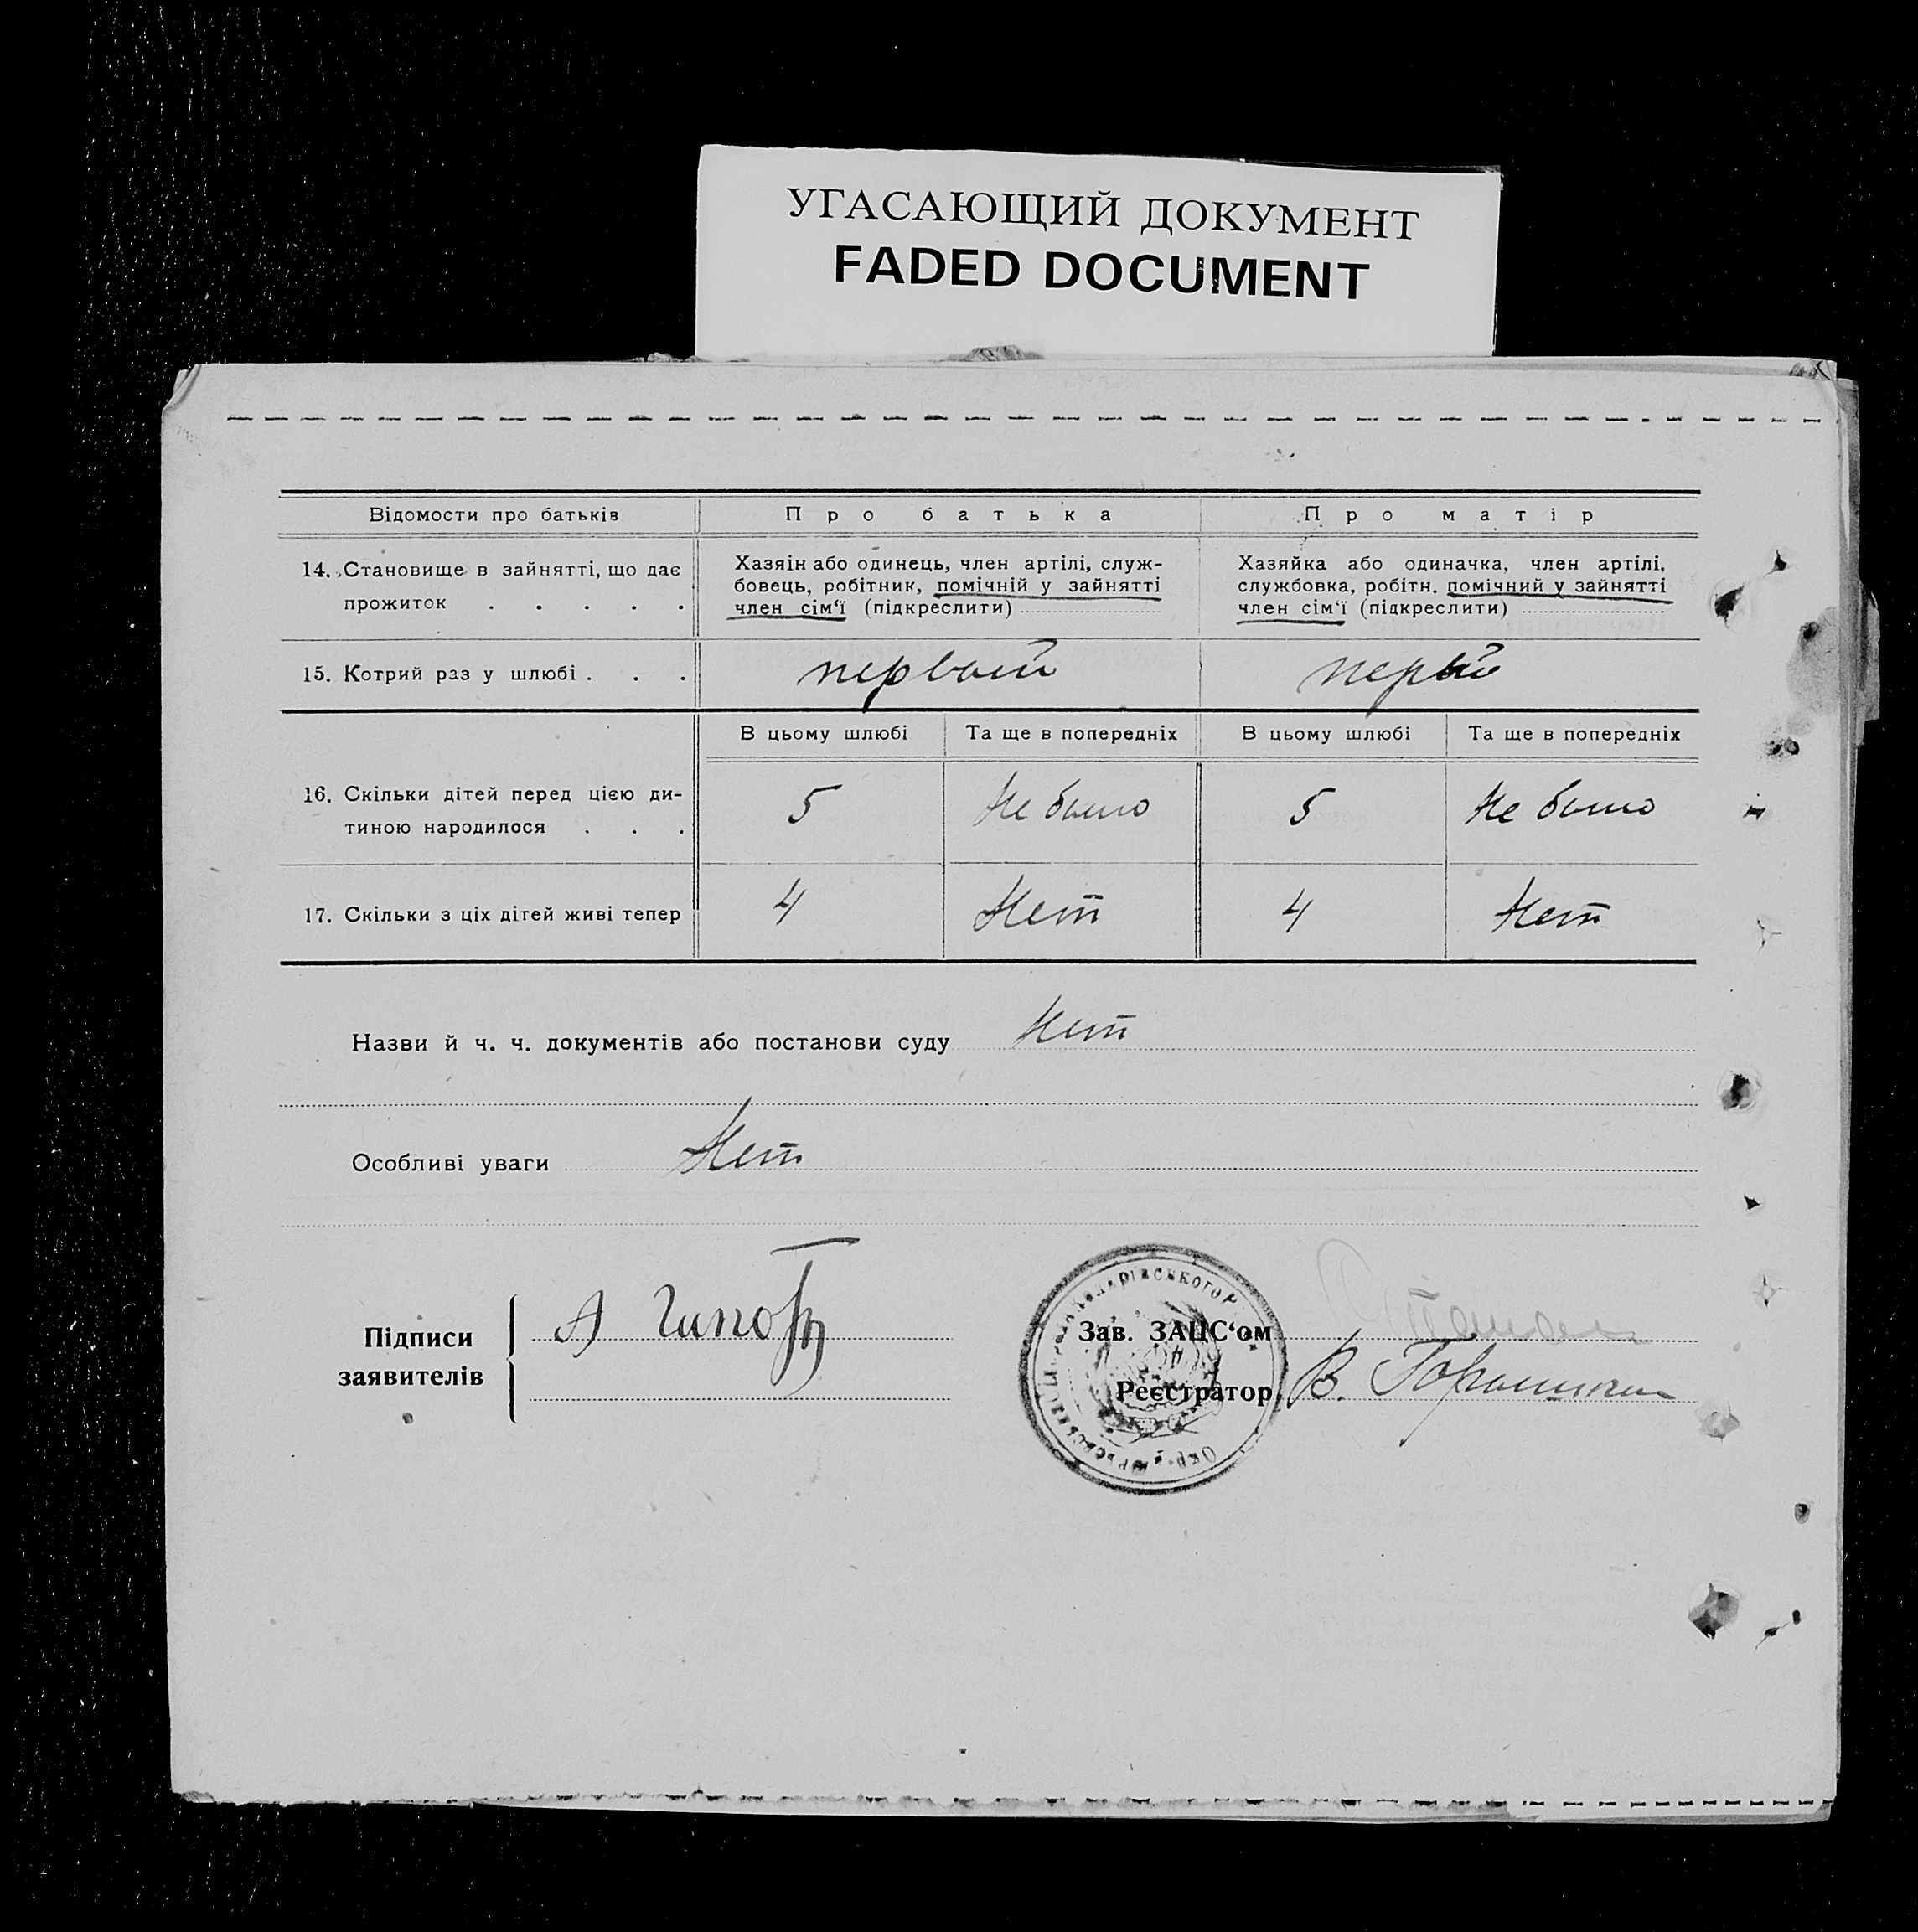 УГАСАЮЩИЙ ДОКУМЕНТ
FADED DOCUMENT
Відомости про батьків
Про батька
Про матір
14. Становище в зайнятті, що дає
прожиток . . . . .
Хазяін або одинець, член артілі, служ-
бовець, робітник, помічній у зайнятті
член сім'ї (підкреслити)
Хазяйка або одиначка, член артілі,
службовка, робітн. помічний у зайнятті
член сім'ї (підкреслити)
15. Котрий раз у шлюбі . . .
первый
перый
В цьому шлюбі
Та ще в попередніх
В цьому шлюбі
Та ще в попередніх
16. Скільки дітей перед цією ди-
тиною народилося . . .
5
Не было
5
Не было
17. Скільки з ціх дітей живі тепер
4
Нет
4
Нет
Назви й ч. ч. документів або постанови суду Нет
Особливі уваги Нет
Підписи
заявителів
А
Зав. ЗАЦС'ом
Реєстратор В.